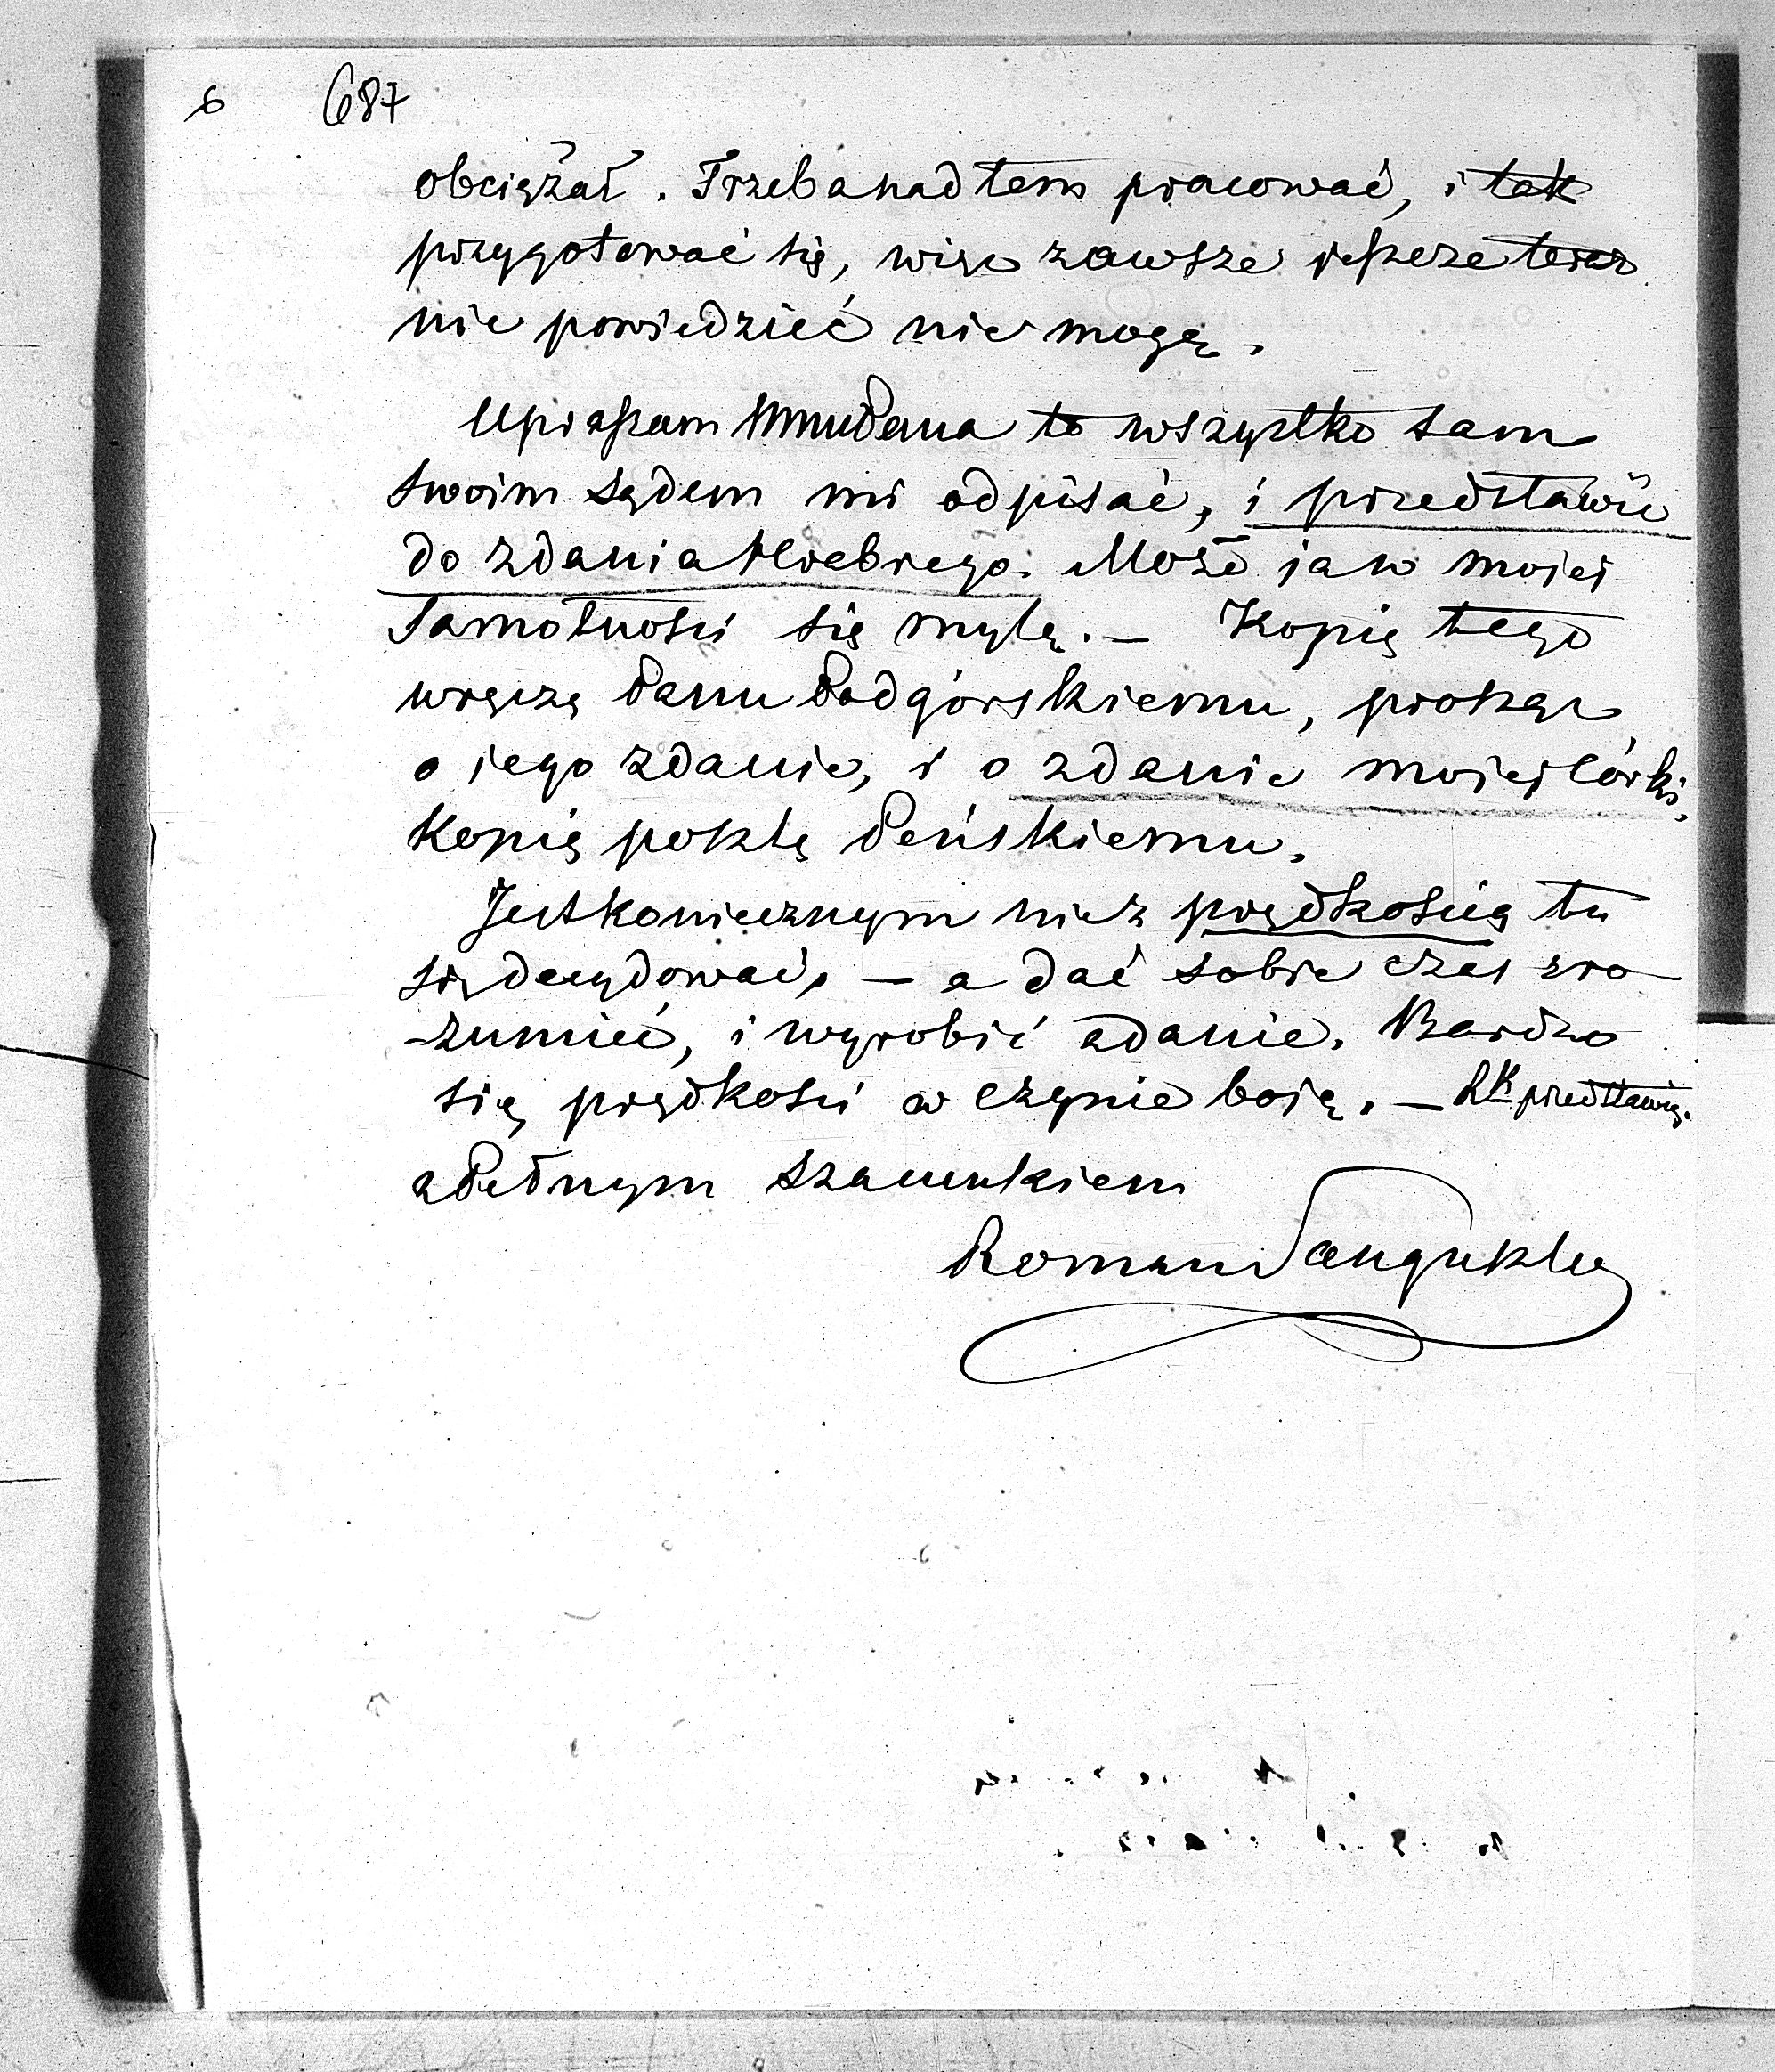 6 687
obciążał. Trzeba nad tem pracować, i tak
przygotować się, więc zawsze jeszcze teraz
nic powiedzieć nie mogę.
Upraszam Pana to wszystko sam
swoim sądem mi odpisać, i przedstawić
do zdania Hrabiego. Może ja w mojej
samotności się mylę. — Kopię tego
wręczę Panu Podgórskiemu, prosząc
o jego zdanie, i o zdanie mojej córki,
Kopię poszlę Peńskiemu.
Jest koniecznym nie z prędkością tu
się decydować, — a dać sobie czas zro
-zumieć, i wyrobić zdanie. Bardzo
się prędkości w czynie boję. — przedstawią.
z Pełnym szacunkiem
Roman Sanguszko